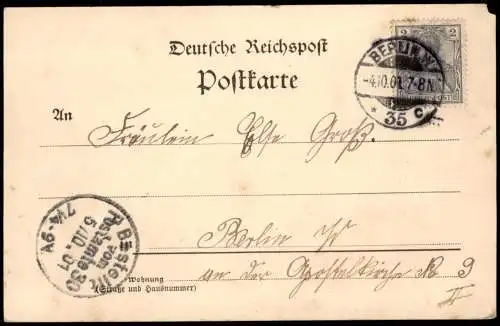 Deutsche Reichspost
Postkarte
2
BERLIN W
-4.10.01.7-8N.
* 35 c
An
Fräulein Else Groß.
Bestellt
Postamte 30
5/10.01
7¼-9V
Berlin W
Wohnung
(Straße und Hausnummer)
an der Apostelkirche № 9
II